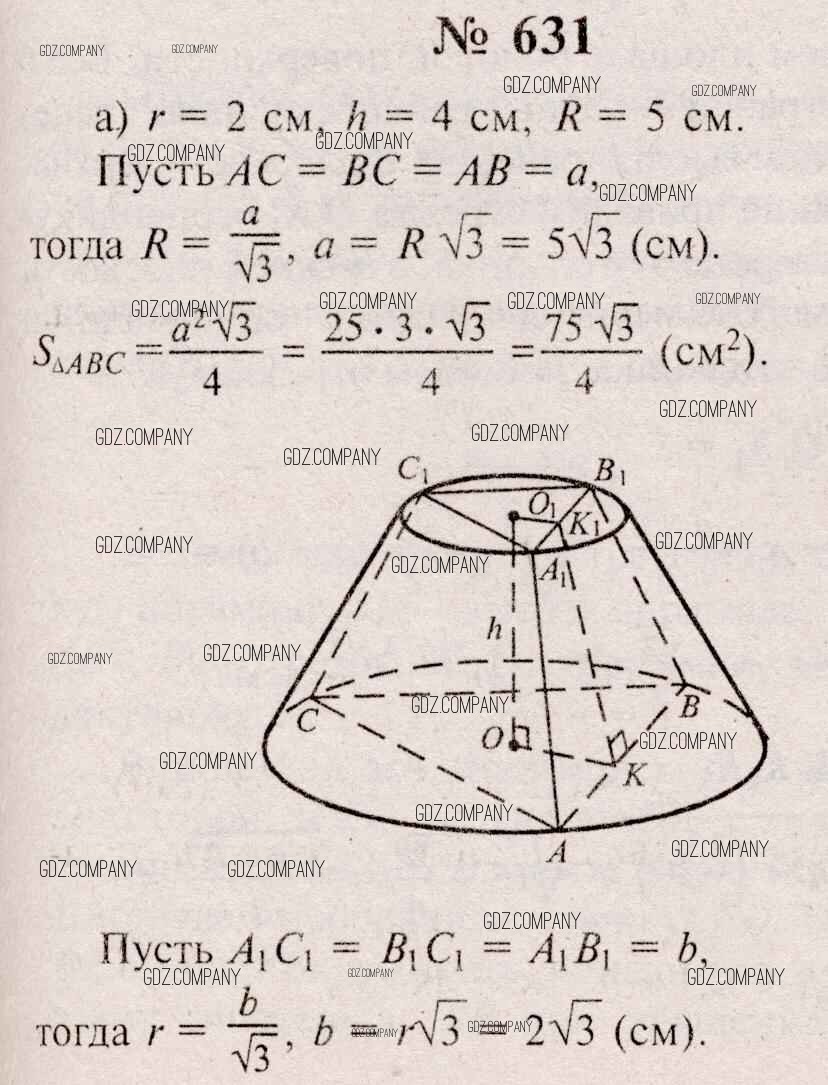 № 631
GDZ.COMPANY GDZ.COMPANY
GDZ.COMPANY GDZ.COMPANY
а) r = 2 см, h = 4 см, R = 5 см.
GDZ.COMPANY GDZ.COMPANY
Пусть AC = BC = AB = a,
GDZ.COMPANY
тогда R = a/√3, a = R √3 = 5√3 (см).
GDZ.COMPANY GDZ.COMPANY GDZ.COMPANY GDZ.COMPANY
S△ABC = a²√3/4 = 25 · 3 · √3/4 = 75 √3/4 (см²).
GDZ.COMPANY
GDZ.COMPANY GDZ.COMPANY
GDZ.COMPANY
C₁ B₁
O₁ K₁
GDZ.COMPANY GDZ.COMPANY
GDZ.COMPANY A₁
h
GDZ.COMPANY GDZ.COMPANY
GDZ.COMPANY
C B
O GDZ.COMPANY
GDZ.COMPANY K
GDZ.COMPANY
A GDZ.COMPANY
GDZ.COMPANY GDZ.COMPANY
GDZ.COMPANY
Пусть A₁C₁ = B₁C₁ = A₁B₁ = b,
GDZ.COMPANY GDZ.COMPANY GDZ.COMPANY
тогда r = b/√3, b = r√3 = 2√3 (см).
GDZ.COMPANY GDZ.COMPANY